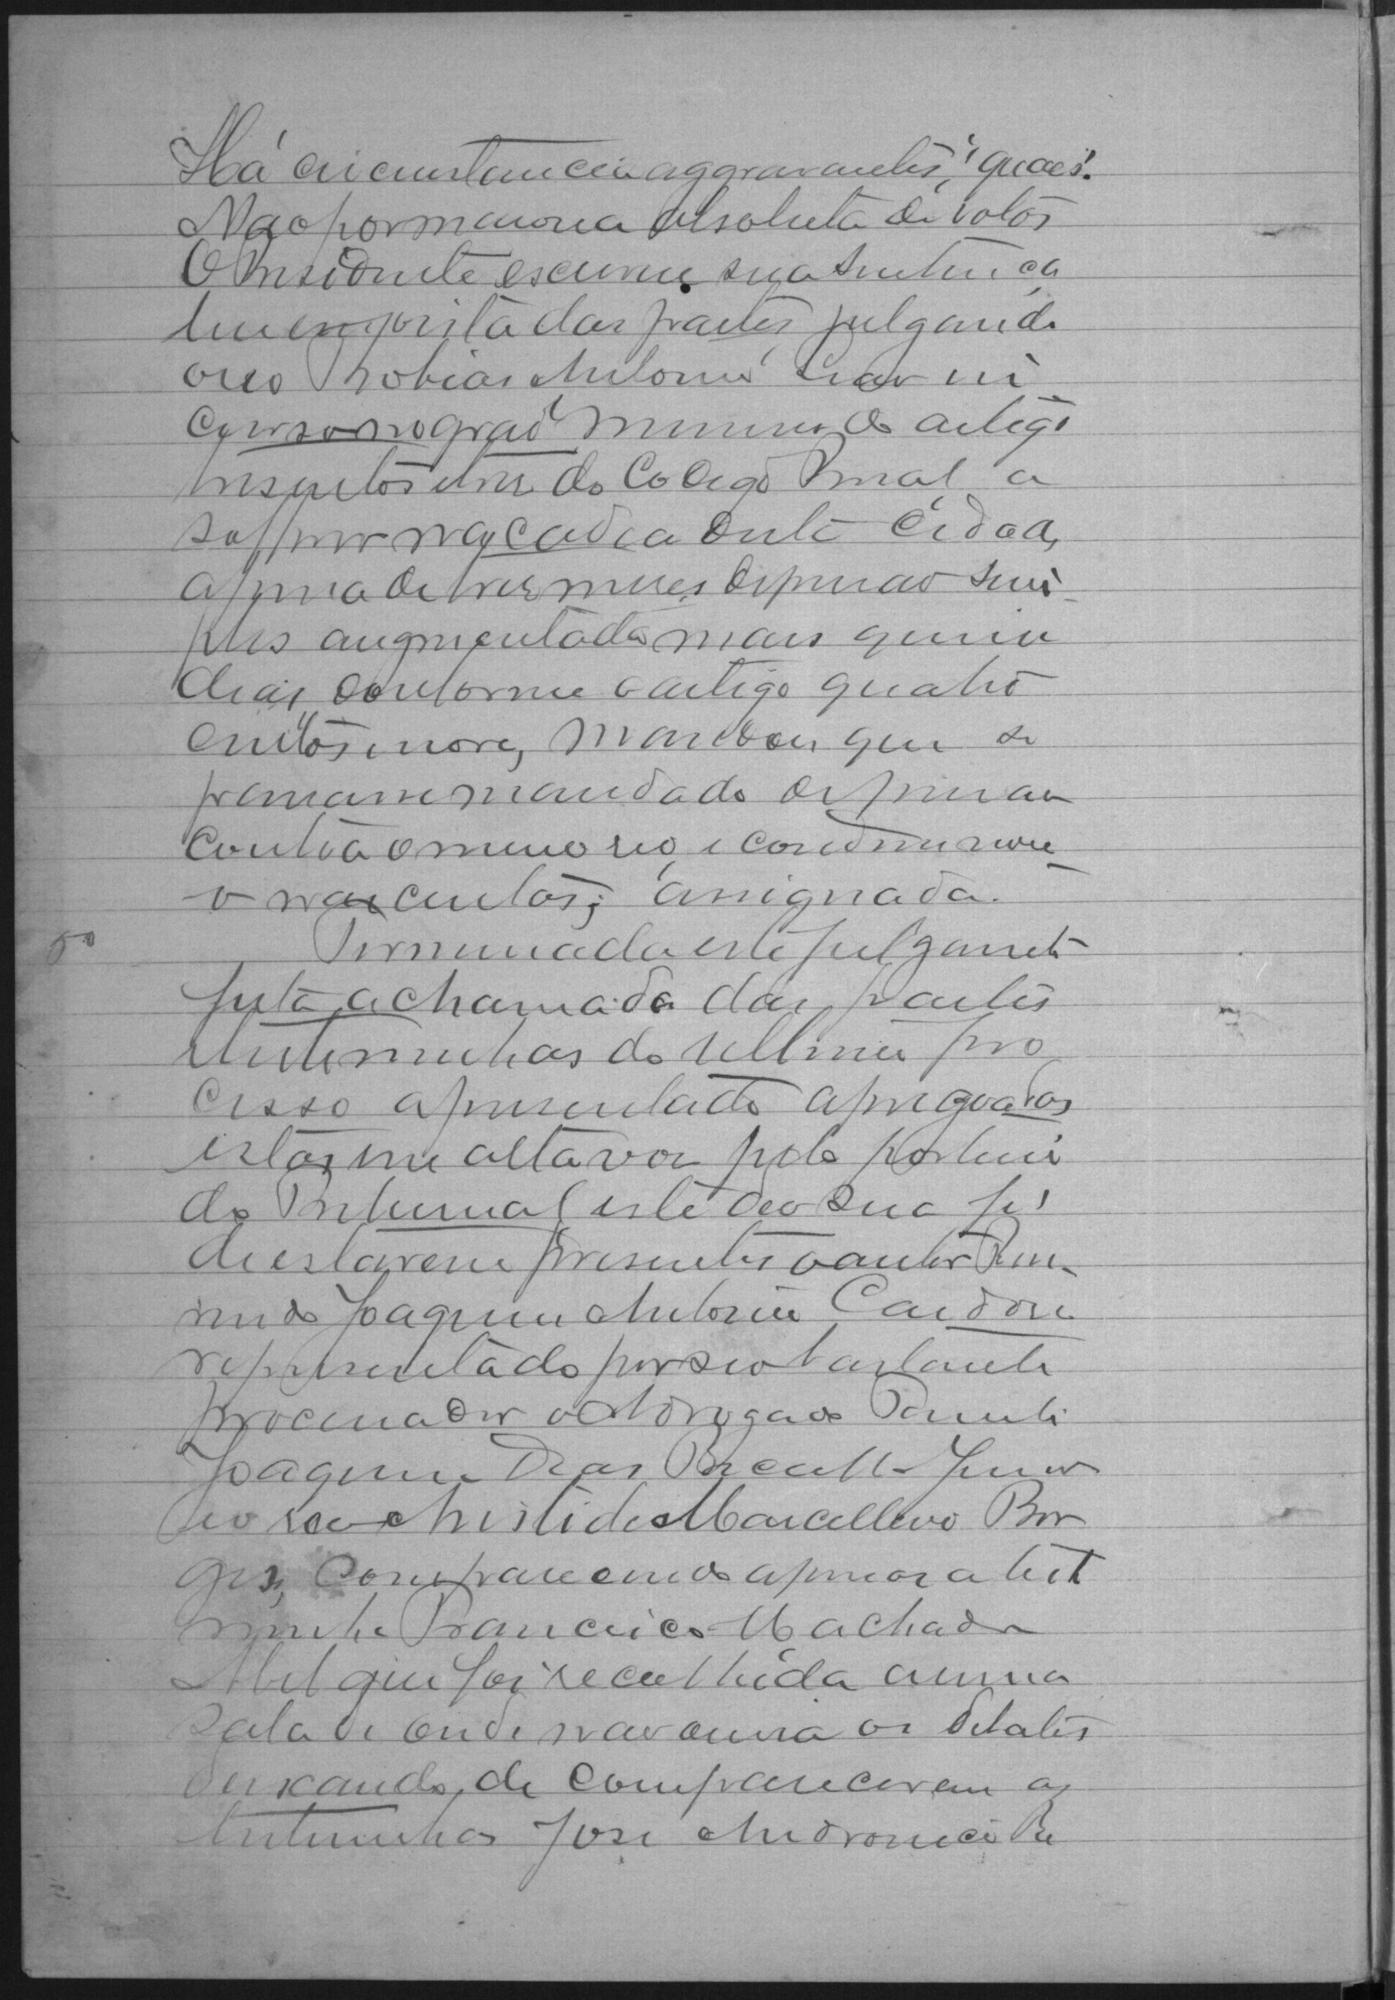 Há circunstancia aggravantes, quaes?
Não por maioria absoluta de votos
O Presidente escreveu sua sentença
leu em vista das partes, julgando
o reo Tobias Antonio incur
curso no grao minimo do artigo
tresentos e tres do Codigo Penal a
soffrer na cadea desta cidade,
a pena de tres meses de prisão sim
ples augmentada mais quinze
dias, conforme o artigo quatro
centos e nove, mandou que se
passasse mandado de prisão
contra o mesmo reo, e condemnou
o nas custas; assignada.
Terminada este julgamento
feita a chamada das partes
testeminhas do ultimo pro
cesso apresentado apregoados
estas em alta voz pelo porteiro
do Tribunal este deo sua fé
de estarem presentes o autor
Joaquim Antonio Cardoso
representado por seo bastante
procurador o Advogado Tenente
Joaquim Dias Bicalho Junior
e o reo Aristides Marcellino Bor
ges, Comparecendo apenas a teste
minha Francisco Machado
Abel que foi recolhida a uma
sala de onde não ouvia os debates
deixando de comparecerem as
testeminhas José Andronico Pe